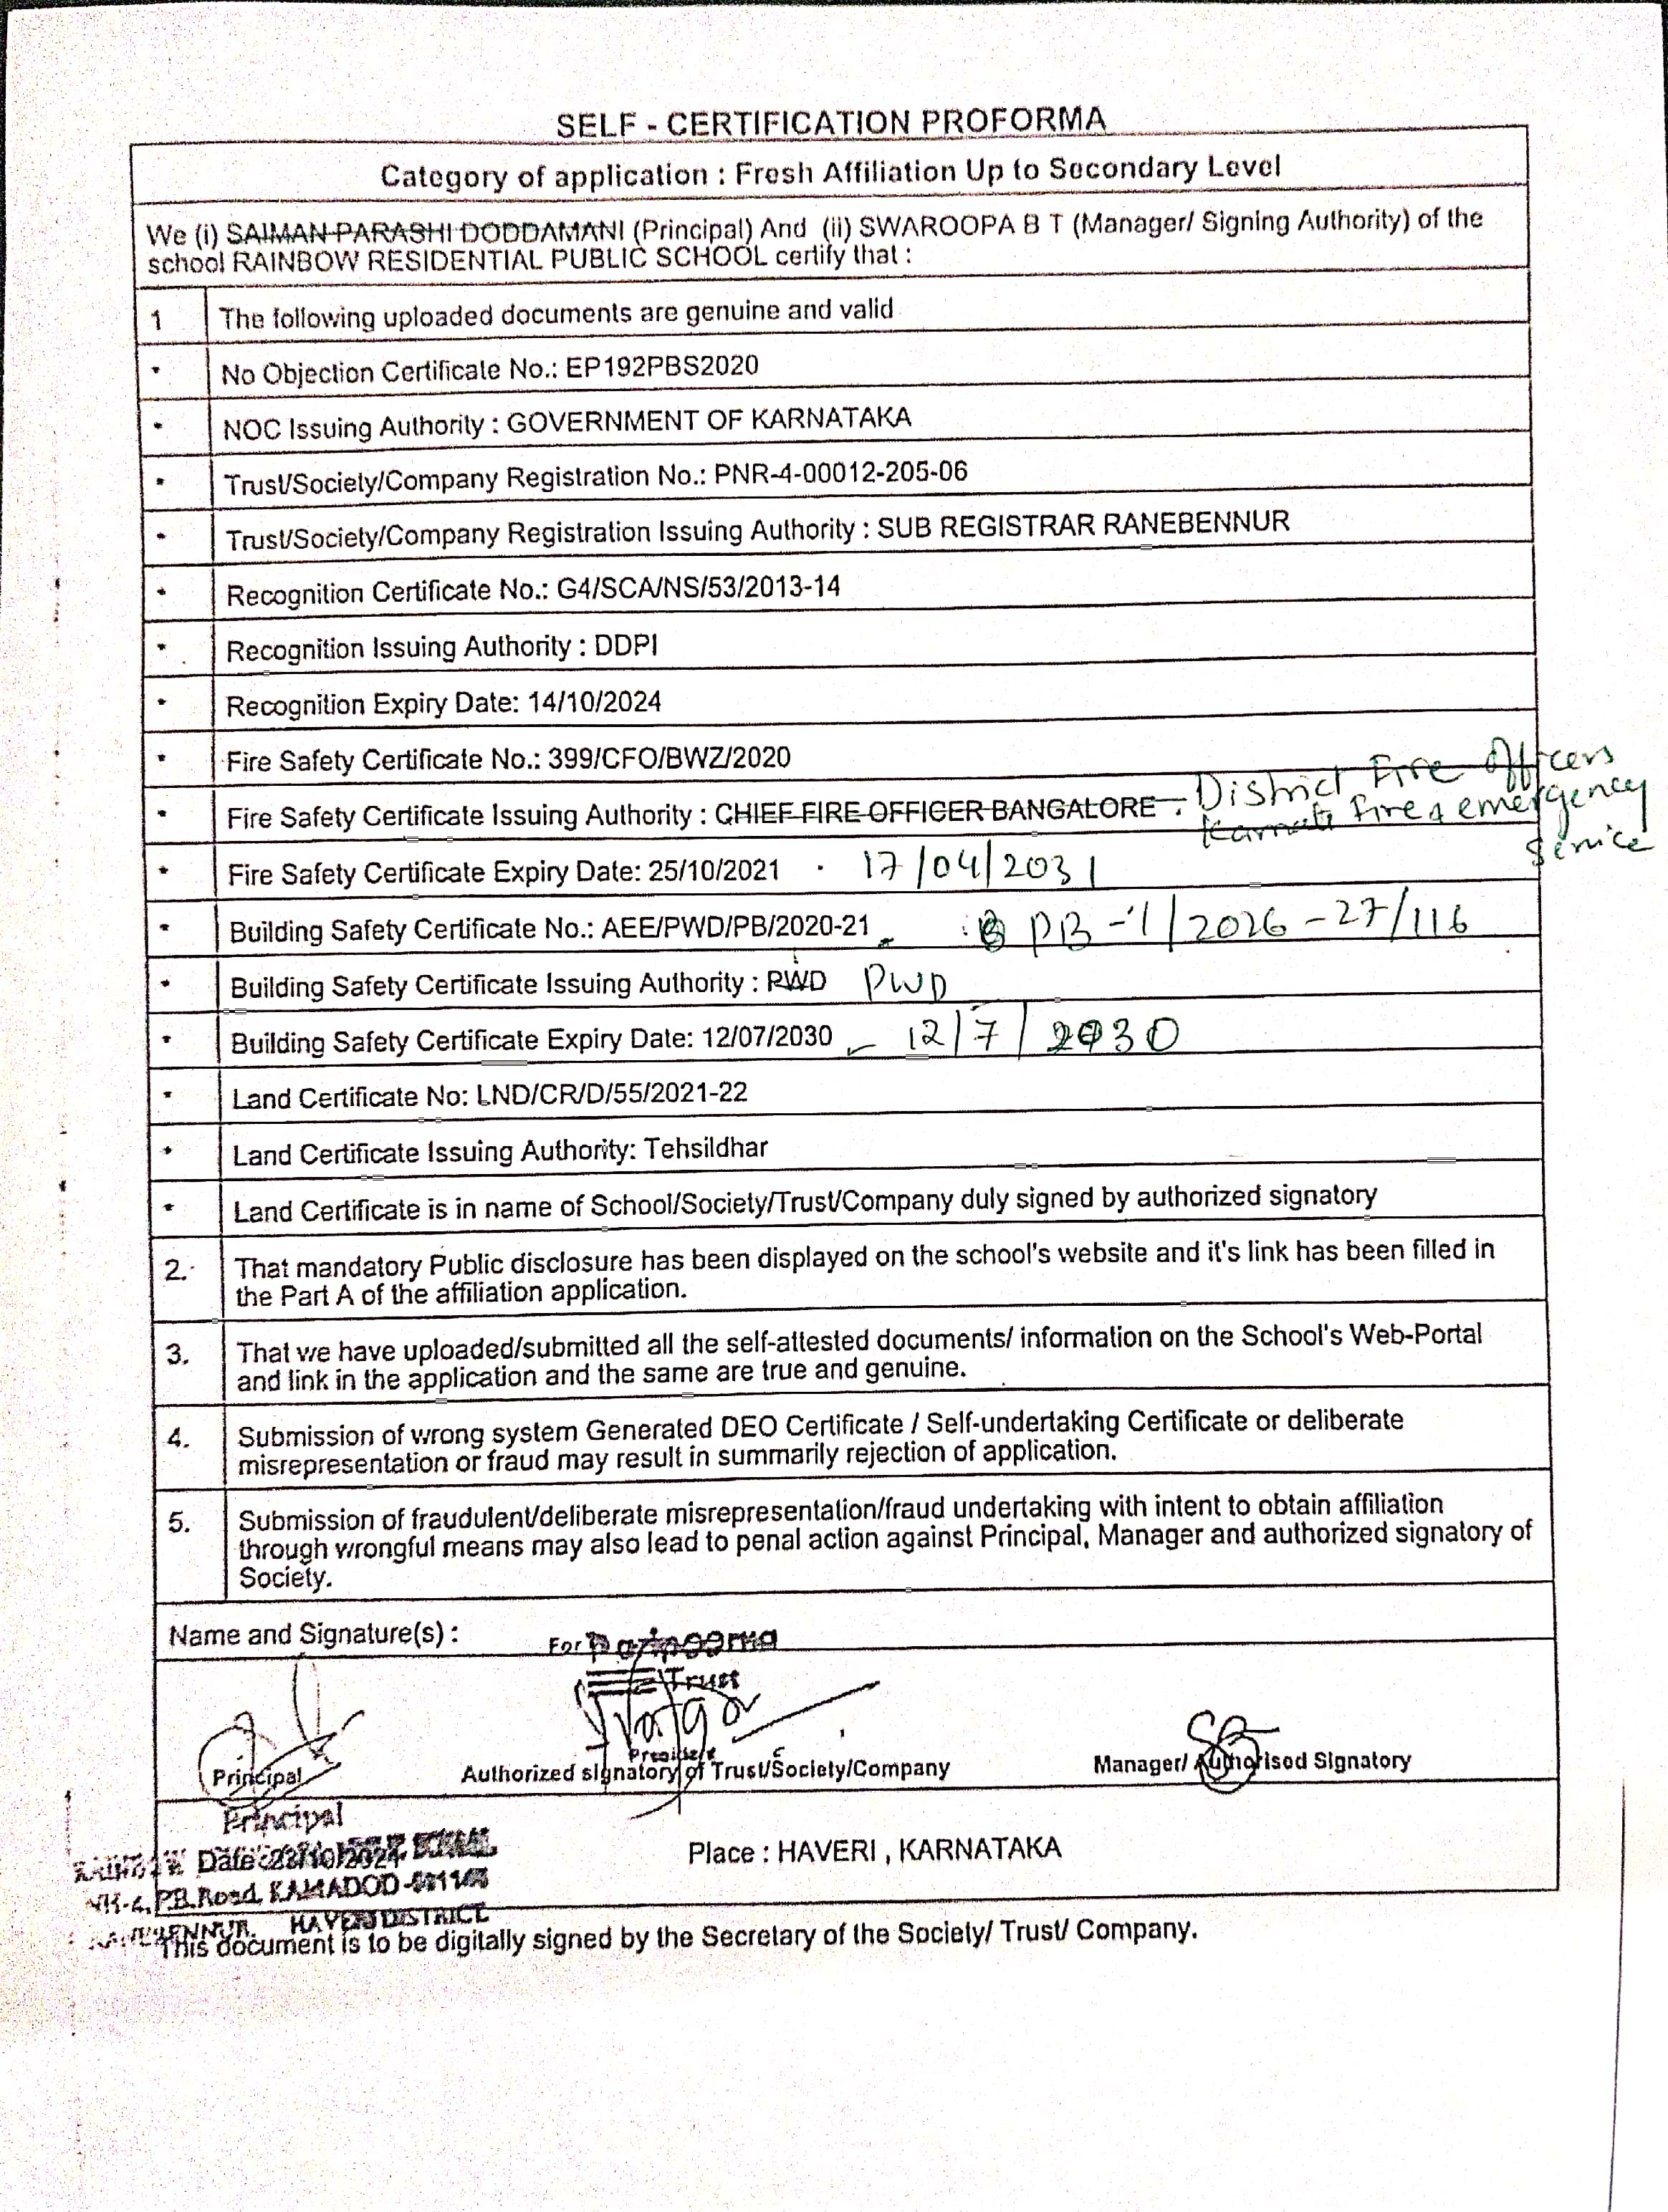 SELF - CERTIFICATION PROFORMA
Category of application : Fresh Affiliation Up to Secondary Level
We (i) SAIMAN PARASHI DODDAMANI (Principal) And (ii) SWAROOPA B T (Manager/ Signing Authority) of the
school RAINBOW RESIDENTIAL PUBLIC SCHOOL certify that :
1 The following uploaded documents are genuine and valid
* No Objection Certificate No.: EP192PBS2020
* NOC Issuing Authority : GOVERNMENT OF KARNATAKA
* Trust/Society/Company Registration No.: PNR-4-00012-205-06
* Trust/Society/Company Registration Issuing Authority : SUB REGISTRAR RANEBENNUR
* Recognition Certificate No.: G4/SCA/NS/53/2013-14
* Recognition Issuing Authority : DDPI
* Recognition Expiry Date: 14/10/2024
* Fire Safety Certificate No.: 399/CFO/BWZ/2020
* Fire Safety Certificate Issuing Authority : CHIEF FIRE OFFICER BANGALORE . District Fire Officers
Fire & emergency
Service
* Fire Safety Certificate Expiry Date: 25/10/2021 . 17/04/2031
* Building Safety Certificate No.: AEE/PWD/PB/2020-21 PB-1/2026-27/116
* Building Safety Certificate Issuing Authority : RWD PWD
* Building Safety Certificate Expiry Date: 12/07/2030 - 12/7/2030
* Land Certificate No: LND/CR/D/55/2021-22
* Land Certificate Issuing Authority: Tehsildhar
* Land Certificate is in name of School/Society/Trust/Company duly signed by authorized signatory
2. That mandatory Public disclosure has been displayed on the school's website and it's link has been filled in
the Part A of the affiliation application.
3. That we have uploaded/submitted all the self-attested documents/ information on the School's Web-Portal
and link in the application and the same are true and genuine.
4. Submission of wrong system Generated DEO Certificate / Self-undertaking Certificate or deliberate
misrepresentation or fraud may result in summarily rejection of application.
5. Submission of fraudulent/deliberate misrepresentation/fraud undertaking with intent to obtain affiliation
through wrongful means may also lead to penal action against Principal, Manager and authorized signatory of
Society.
Name and Signature(s) :
For
Trust
President
Principal Authorized signatory of Trust/Society/Company Manager/ Authorised Signatory
Principal
Date 23/10/2024
Place : HAVERI , KARNATAKA
NH-4, P.B.Road, KAMADOD
HAVERI DISTRICT
This document is to be digitally signed by the Secretary of the Society/ Trust/ Company.